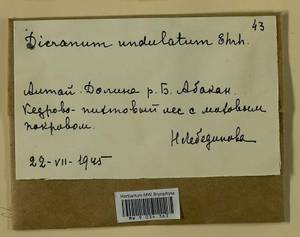 43
Dicranum undulatum Ehrh.
Алтай. Долина р. Б. Абакан.
Кедрово-пихтовый лес с моховым
покровом.
Н Лебединова
22-VII-1945
Herbarium MW, Bryophyta